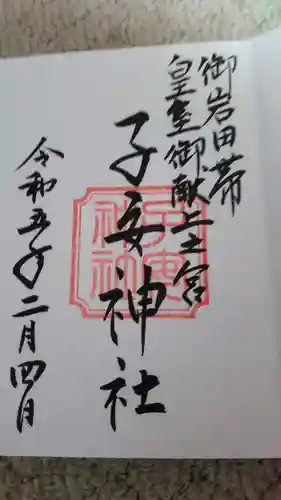 御岩田帯
皇室御献上之宮
子安神社
子安
神社
令和五年二月四日